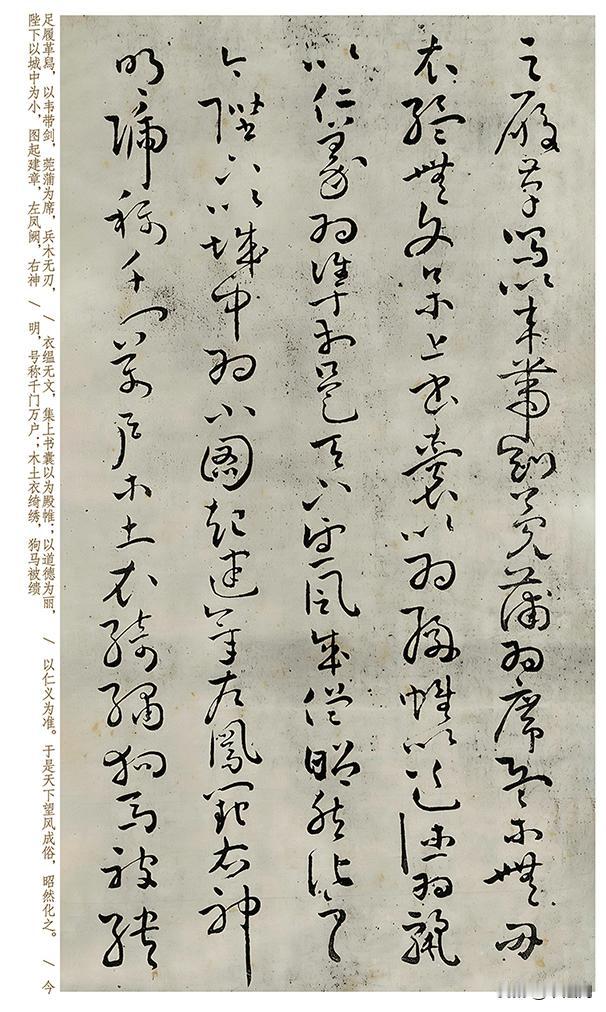 足履革舄以韋帶劍莞蒲為席兵木無刃
衣縕無文集上書囊以為殿帷以道德為麗
以仁義為準於是天下望風成俗昭然化之
今陛下以城中為小圖起建章左鳳闕右神
明號稱千門萬戶木土衣綺繡狗馬被繢
足履革舄，以韦带剑，莞蒲为席，兵木无刃， / 衣缊无文，集上书囊以为殿帷；以道德为丽， / 以仁义为准。于是天下望风成俗，昭然化之。 / 今
陛下以城中为小，图起建章，左凤阙，右神 / 明，号称千门万户；木土衣绮绣，狗马被缋